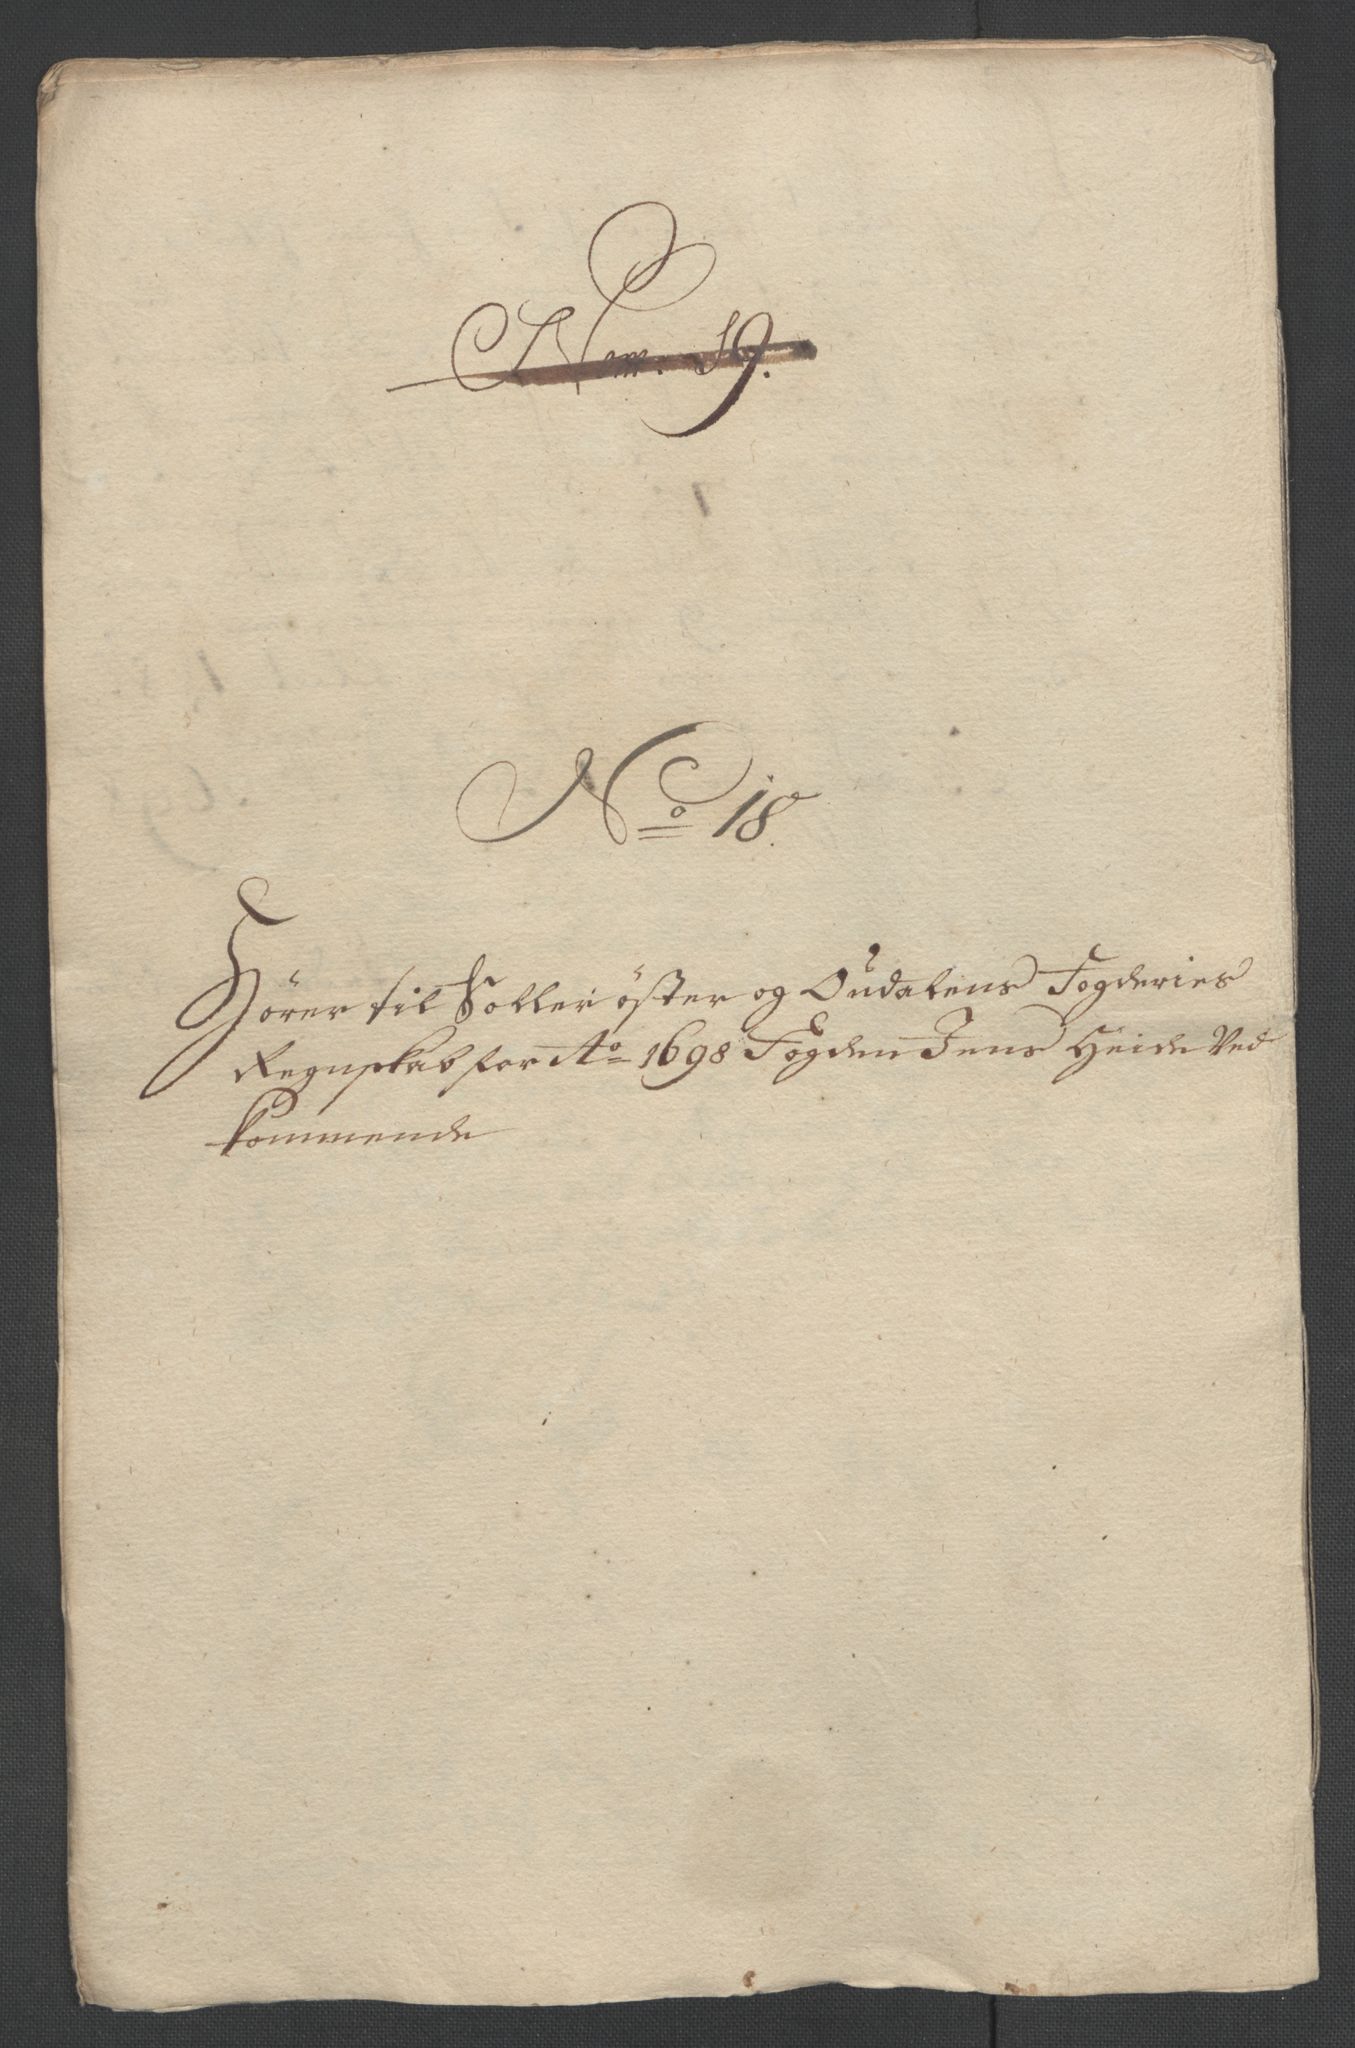 Num. 19.
No 18.
Hörer til Soller öster og Oudalens Fogderies
Regnskab for Ao 1698 Fogden Jens Heide Ved
kommende